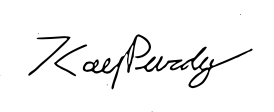 Kay Purdy